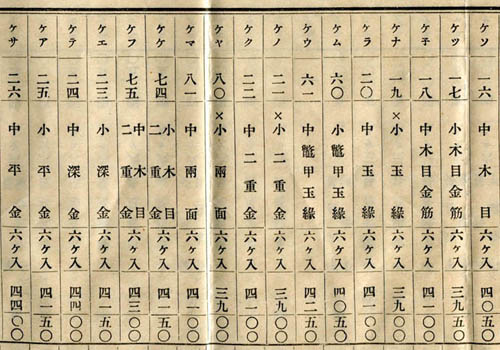 ケソ 一六 中木目 六ヶ入 四〇五〇
ケツ 一七 小木目金筋 六ヶ入 四〇五〇
ケ子 一八 中木目金筋 六ヶ入 四一〇〇
ケナ 一九 ×小玉縁 六ヶ入 三九〇〇
ケラ 二〇 中玉縁 六ヶ入 四一〇〇
ケム 六〇 小鼈甲玉縁 六ヶ入 四〇五〇
ケウ 六一 中鼈甲玉縁 六ヶ入 四二五〇
ケノ 二一 ×小二重金 六ヶ入 三九〇〇
ケク 二二 中二重金 六ヶ入 四一〇〇
ケヤ 八〇 ×小兩面 六ヶ入 三九〇〇
ケマ 八一 中兩面 六ヶ入 四一〇〇
ケケ 七四 小木目二重金 六ヶ入 四一五〇
ケフ 七五 中木目二重金 六ヶ入 四三〇〇
ケエ 二三 小深金 六ヶ入 四一五〇
ケテ 二四 中深金 六ヶ入 四四〇〇
ケア 二五 小平金 六ヶ入 四一五〇
ケサ 二六 中平金 六ヶ入 四四〇〇